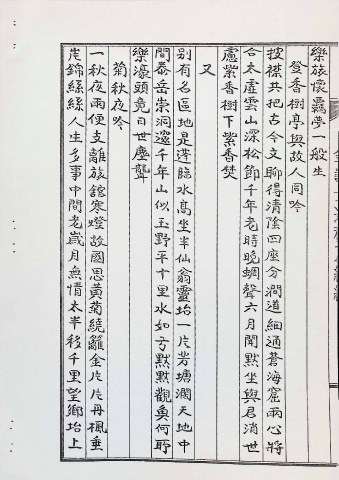 樂旅懷羈夢一般生
登香樹亭與故人同吟
披襟共把古今文聊得清陰四座分澗道細通蒼海窟雨心將
合太虛雲山深松節千年老時晚蜩聲六月聞默坐與君消世
慮紫香樹下紫香焚
又
別有名區地是蓬臨水高坐半仙翁靈坮一片岩塘濶天地中
間泰岳崇洞邃千年山似玉野平十里水如弓默默觀魚何所
樂濠頭竟日世塵聾
菊秋夜吟
一秋夜雨便支離旅舘寒燈故國思黃菊繞籬金片片丹楓垂
岸錦絲絲人生多事中間老歲月無情太半移千里望鄉坮上